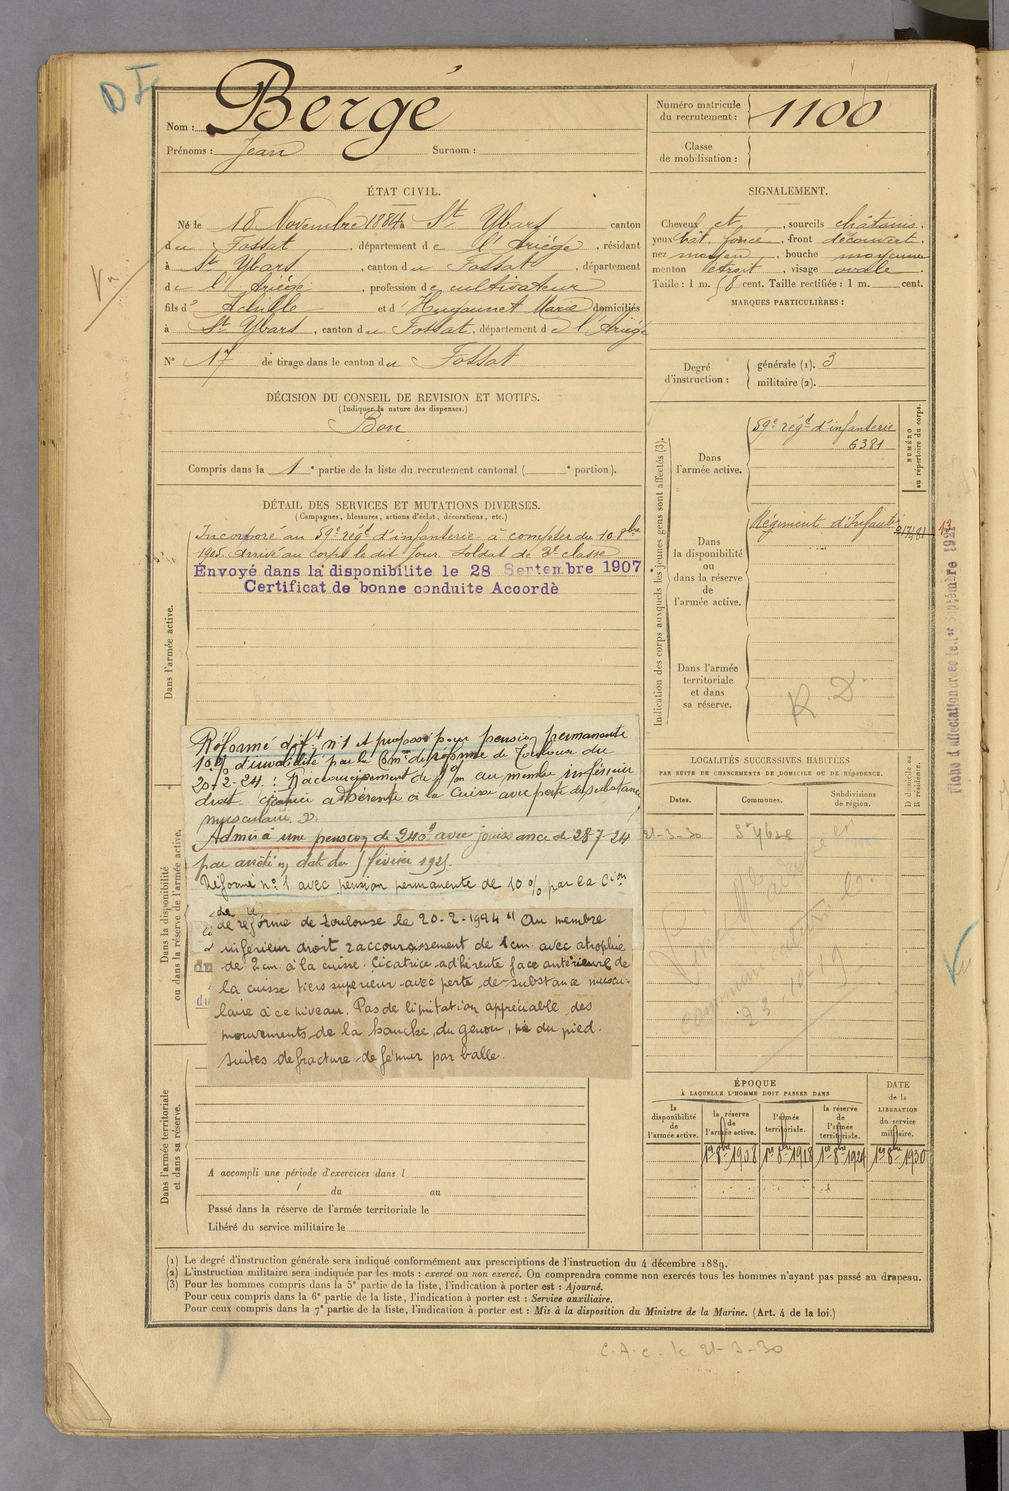 D I
Nom : Bergé
Prénoms : Jean Surnom :
Numéro matricule du recrutement : 1100
Classe de mobilisation :
ÉTAT CIVIL.
Né le 18 Novembre 1884 à St Ybars canton
du Fossat, département de l'Ariège, résidant
à St Ybars, canton du Fossat, département
de l'Ariège, profession de cultivateur
fils d' Achille et d' Hugounet Marie domiciliés
à St Ybars, canton du Fossat, département de l'Ariège
N° 17 de tirage dans le canton du Fossat
SIGNALEMENT.
Cheveux et, sourcils châtains,
yeux foncé, front découvert,
nez moyen, bouche moyenne
menton étroit, visage ovale.
Taille : 1 m. 58 cent. Taille rectifiée : 1 m. cent.
MARQUES PARTICULIÈRES :
Degré d'instruction : générale (1). 3
militaire (2).
DÉCISION DU CONSEIL DE REVISION ET MOTIFS.
(Indiquer la nature des dispenses.)
Bon
Compris dans la 1e partie de la liste du recrutement cantonal ( e portion).
DÉTAIL DES SERVICES ET MUTATIONS DIVERSES.
(Campagnes, blessures, actions d'éclat, décorations, etc.)
Dans l'armée active.
Incorporé au 59e régt d'infanterie à compter du 10 8bre
1905. Arrivé au corps le dit jour. Soldat de 2e classe
Envoyé dans la disponibilite le 28 Septembre 1907.
Certificat de bonne conduite Accordè
Dans la disponibilité ou dans la réserve de l'armée active.
Réformé déft n°1 et proposé pour pension permanente
10% d'invalidité par la Comon de réforme de Toulouse du
20-2-24 : Raccourcissement de 1 cm au membre inférieur
droit cicatrice adhérente à la cuisse avec perte de substance
musculaire.
Admis à une pension de 240f avec jouissance du 28 7 24
par arrêté en date du 5 février 1925.
Réformé n° 1 avec pension permanente de 10% par la Cion
de réforme de Toulouse le 20-2-1924 "Au membre
inférieur droit raccourcissement de 1cm avec atrophie
de 2cm à la cuisse. Cicatrice adhérente face antérieure de
la cuisse tiers supérieur avec perte de substance muscu-
laire à ce niveau. Pas de limitation appréciable des
mouvements de la hanche, du genou, ni du pied.
suites de fracture de fémur par balle.
Dans l'armée territoriale et dans sa réserve.
A accompli une période d'exercices dans l
du au
Passé dans la réserve de l'armée territoriale le
Libéré du service militaire le
Indication des corps auxquels les jeunes gens sont affectés (3).
Dans l'armée active. 59e régt d'infanterie
6381
NUMÉRO au répertoire du corps.
Dans la disponibilité ou dans la réserve de l'armée active. Régiment d'Infantie
Dans l'armée territoriale et dans sa réserve.
R. D.
Fiche d'affectation créée le 1er Septembre 1921
LOCALITÉS SUCCESSIVES HABITÉES
PAR SUITE DE CHANGEMENTS DE DOMICILE OU DE RÉSIDENCE.
Dates. Communes. Subdivisions de région. D domicile ou R résidence.
21-3-30 St Ybars
23-10-19
ÉPOQUE
À LAQUELLE L'HOMME DOIT PASSER DANS
la disponibilité de l'armée active. la réserve de l'armée active. l'armée territoriale. la réserve de l'armée territoriale. DATE de la LIBÉRATION du service militaire.
1er 8bre 1908 1er 8bre 1918 1er 8bre 1924 1er 8bre 1930
(1) Le degré d'instruction générale sera indiqué conformément aux prescriptions de l'instruction du 4 décembre 1889.
(2) L'instruction militaire sera indiquée par les mots : exercé ou non exercé. On comprendra comme non exercés tous les hommes n'ayant pas passé au drapeau.
(3) Pour les hommes compris dans la 5e partie de la liste, l'indication à porter est : Ajourné.
Pour ceux compris dans la 6e partie de la liste, l'indication à porter est : Service auxiliaire.
Pour ceux compris dans la 7e partie de la liste, l'indication à porter est : Mis à la disposition du Ministre de la Marine. (Art. 4 de la loi.)
C.A.C. le 21-3-30